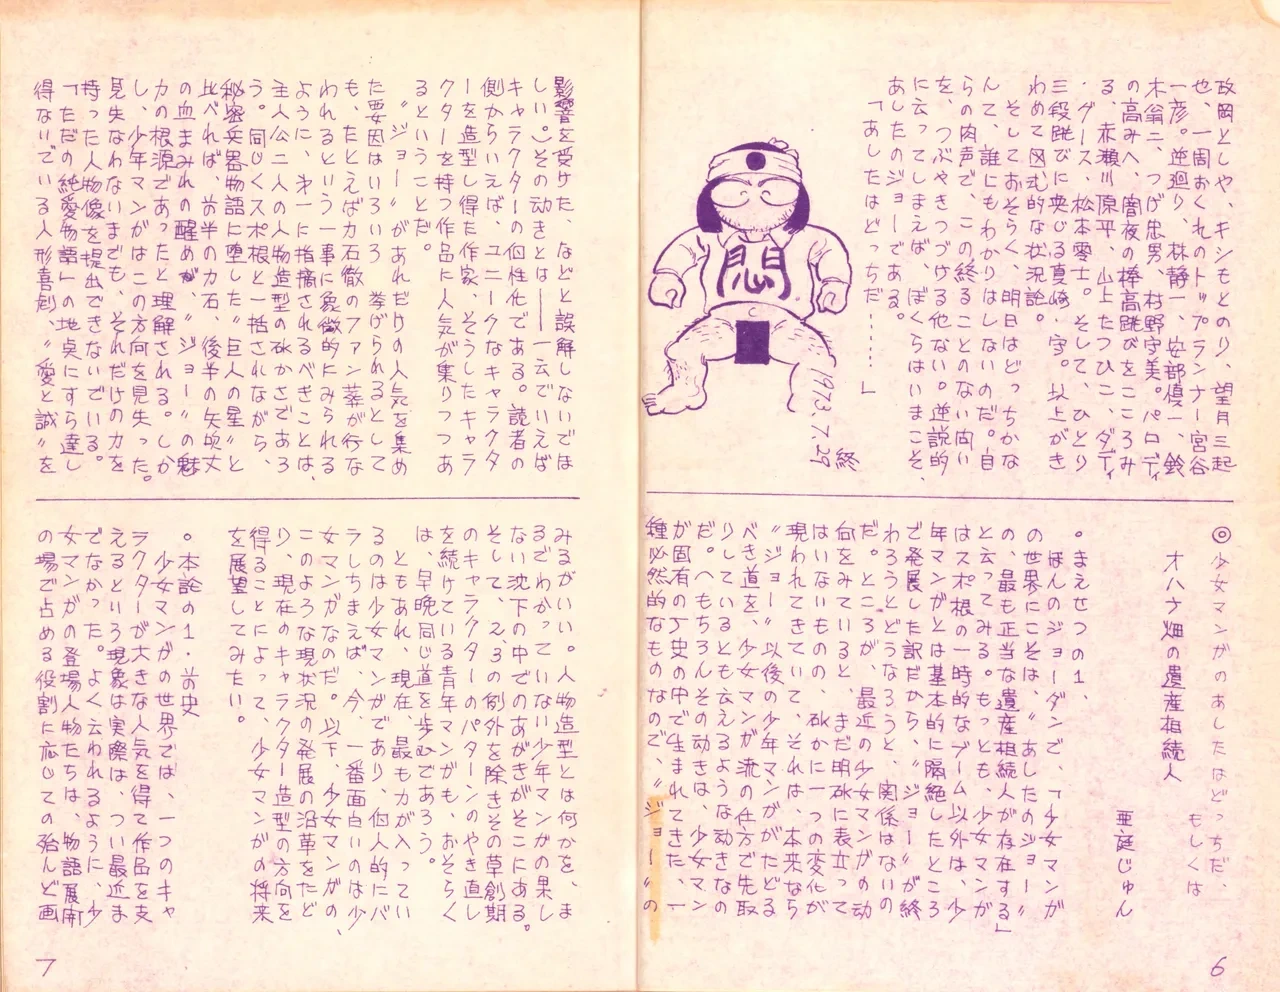 政岡としや、キシもとのり、望月三起
也、一周おくれのトップランナー宮谷
一彦。逆廻り、林静一、安部慎一、鈴
木翁二、つげ忠男、村野守美。パロディ
の高みへ、闇夜の棒高跳びをこころみ
る、赤瀬川原平、山上たつひこ、ダディ
・グース、松本零士。そして、ひとり
三段跳びに興じる真崎・守。以上がき
わめて図式的な状況論。
そしておそらく、明日はどっちかな
んて、誰にもわかりはしないのだ。自
らの肉声で、この終ることのない問い
を、つぶやきつづける他ない。逆説的
に云ってしまえば、ぼくらはいまこそ、
あしたのジョーである。
「あしたはどっちだ………」
終
1973.7.29
悶
◎少女マンガのあしたはどっちだ、
もしくは
オハナ畑の遺産相続人
亜庭じゅん
。まえせつの1、
ほんのジョーダンで、「少女マンガ
の世界にこそは、〝あしたのジョー〟
の、最も正当な遺産相続人が存在する」
と云ってみる。もっとも、少女マンガ
はスポ根の一時的なブーム以外は、少
年マンガとは基本的に隔絶したところ
で発展した訳だから、〝ジョー〟が終
わろうとどうなろうと、関係はないの
だ。ところが、最近の少女マンガの動
向をみていると、まだ明砿に表立って
はいないものの、砿かに一つの変化が
現われてきていて、それは、本来なら
〝ジョー〟以後の少年マンガがたどる
べき道を、少女マンガが流の仕方で先取
りしているとも云えるような動きなの
だ。へもちろんその動きは、少女マン
ガ固有の歴史の中で生まれてきた、一
種必然的なものなので、〝ジョー〟の
6
影響を受けた、などと誤解しないでほ
しい。)その動きとは――一云でいえば
キャラクターの個性化である。読者の
側からいえば、ユニークなキャラクタ
ーを造型し得た作家、そうしたキャラ
クターを持つ作品に人気が集りつつあ
るということだ。
〝ジョー〟があれだけの人気を集め
た要因はいろいろ挙げられるとして
も、たとえば力石徹のファン葬が行な
われるという一事に象徴的にみられる
ように、才一に指摘されるべきことは、
主人公二人の人物造型の砿かさであろ
う。同じくスポ根と一括されながら、
秘密兵器物語に堕した〝巨人の星〟と
比べれば、前半の力石、後半の矢吹丈
の血まみれの醒めが、〝ジョー〟の魅
力の根源であったと理解される。しか
し、少年マンガはこの方向を見失った。
見失なわないまでも、それだけの力を
持った人物像を提出できないでいる。
「ただの純愛物語」の地点にすら達し
得ないでいる人形喜劇、〝愛と誠〟を
みるがいい。人物造型とは何かを、ま
るでわかっていない少年マンガの果し
ない沈下の中でのあがきがそこにある。
そして、2、3の例外を除きその草創期
のキャラクターのパターンのやき直し
を続けている青年マンガも、おそらく
は、早晩同じ道を歩むであろう。
ともあれ、現在、最も力が入ってい
るのは少女マンガであり、個人的にバ
ラしちまえば、今、一番面白いのは少
女マンガなのだ。以下、少女マンガの、
このような現状況の発展の沿革をたど
り、現在のキャラクター造型の方向を
得ることによって、少女マンガの将来
を展望してみたい。
。本論の1・前史
少女マンガの世界では、一つのキャ
ラクターが大きな人気を得て作品を支
えるという現象は実際は、つい最近ま
でなかった。よく云われるように、少
女マンガの登場人物たちは、物語展開
の場で占める役割に応じての殆んど画
7